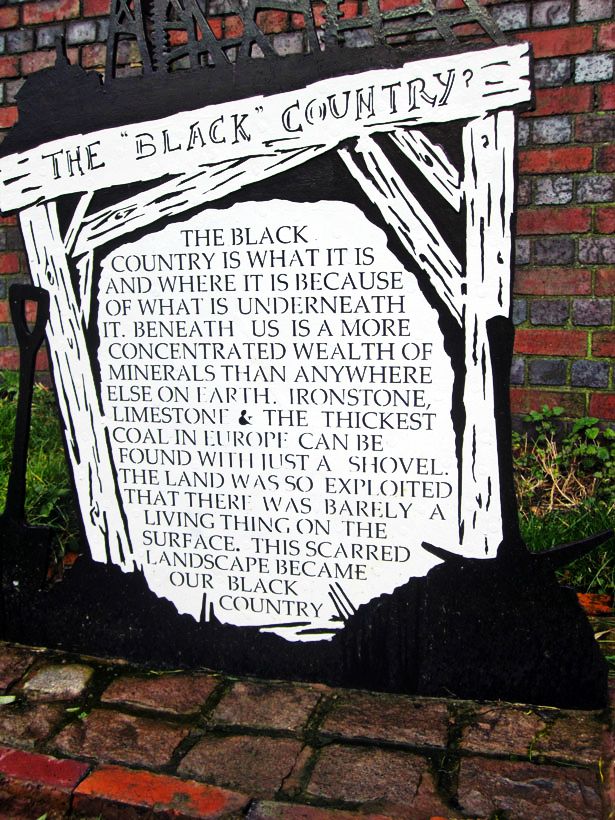 THE "BLACK" COUNTRY?
THE BLACK
COUNTRY IS WHAT IT IS
AND WHERE IT IS BECAUSE
OF WHAT IS UNDERNEATH
IT. BENEATH US IS A MORE
CONCENTRATED WEALTH OF
MINERALS THAN ANYWHERE
ELSE ON EARTH. IRONSTONE,
LIMESTONE & THE THICKEST
COAL IN EUROPE CAN BE
FOUND WITH JUST A SHOVEL.
THE LAND WAS SO EXPLOITED
THAT THERE WAS BARELY A
LIVING THING ON THE
SURFACE. THIS SCARRED
LANDSCAPE BECAME
OUR BLACK
COUNTRY